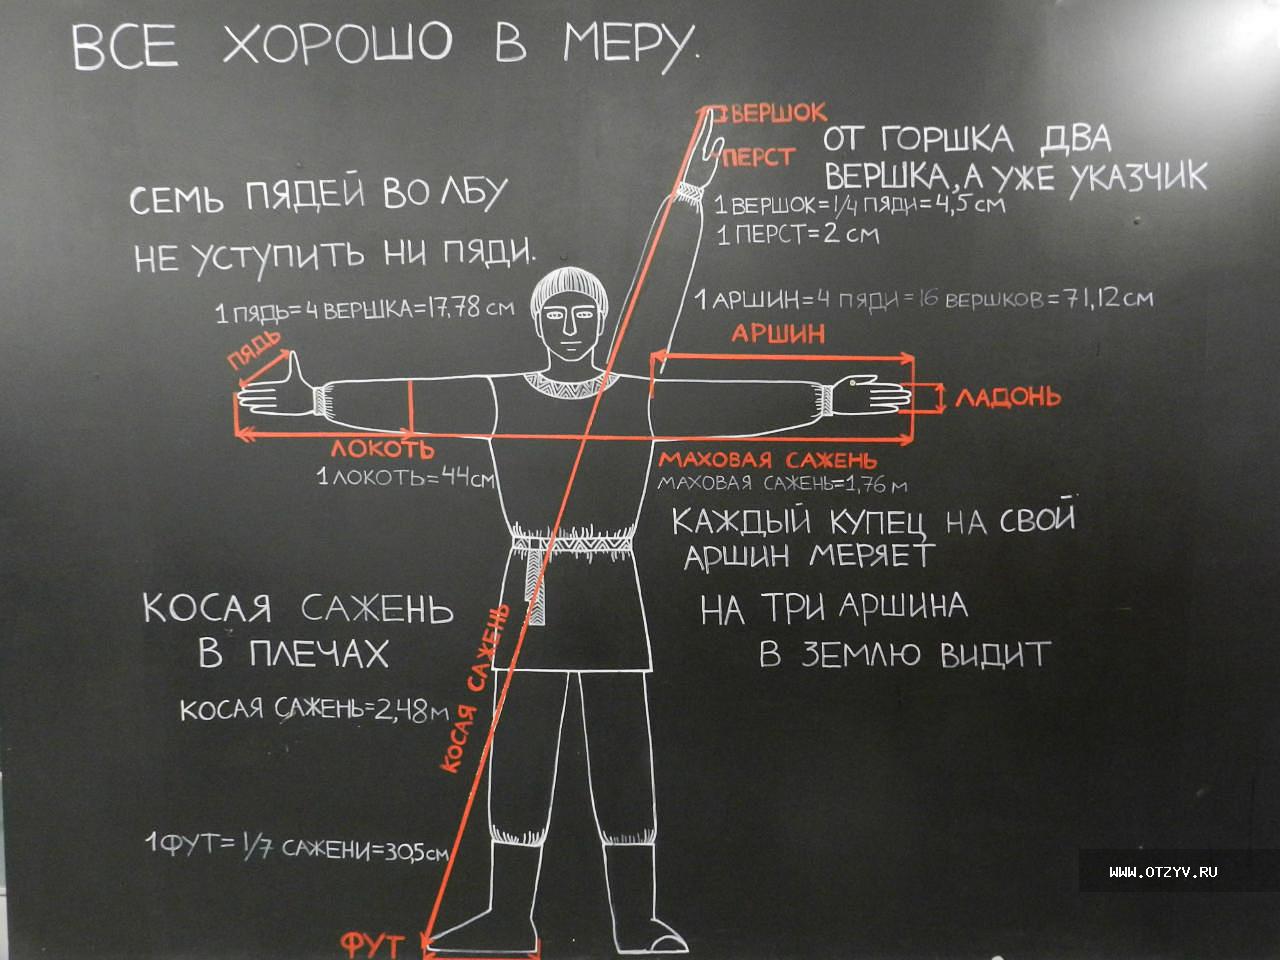 ВСЕ ХОРОШО В МЕРУ.
ВЕРШОК
ПЕРСТ
ОТ ГОРШКА ДВА
ВЕРШКА, А УЖЕ УКАЗЧИК
1 ВЕРШОК=1/4 ПЯДИ=4,5 СМ
1 ПЕРСТ=2 СМ
СЕМЬ ПЯДЕЙ ВО ЛБУ
НЕ УСТУПИТЬ НИ ПЯДИ.
1 ПЯДЬ=4 ВЕРШКА=17,78 СМ
1 АРШИН=4 ПЯДИ=16 ВЕРШКОВ=71,12 СМ
АРШИН
ПЯДЬ
ЛАДОНЬ
ЛОКОТЬ
1 ЛОКОТЬ=44 СМ
МАХОВАЯ САЖЕНЬ
МАХОВАЯ САЖЕНЬ=1,76 М
КАЖДЫЙ КУПЕЦ НА СВОЙ
АРШИН МЕРЯЕТ
НА ТРИ АРШИНА
В ЗЕМЛЮ ВИДИТ
КОСАЯ САЖЕНЬ
В ПЛЕЧАХ
КОСАЯ САЖЕНЬ=2,48 М
КОСАЯ САЖЕНЬ
1 ФУТ= 1/7 САЖЕНИ=30,5 СМ
ФУТ
WWW.OTZYV.RU